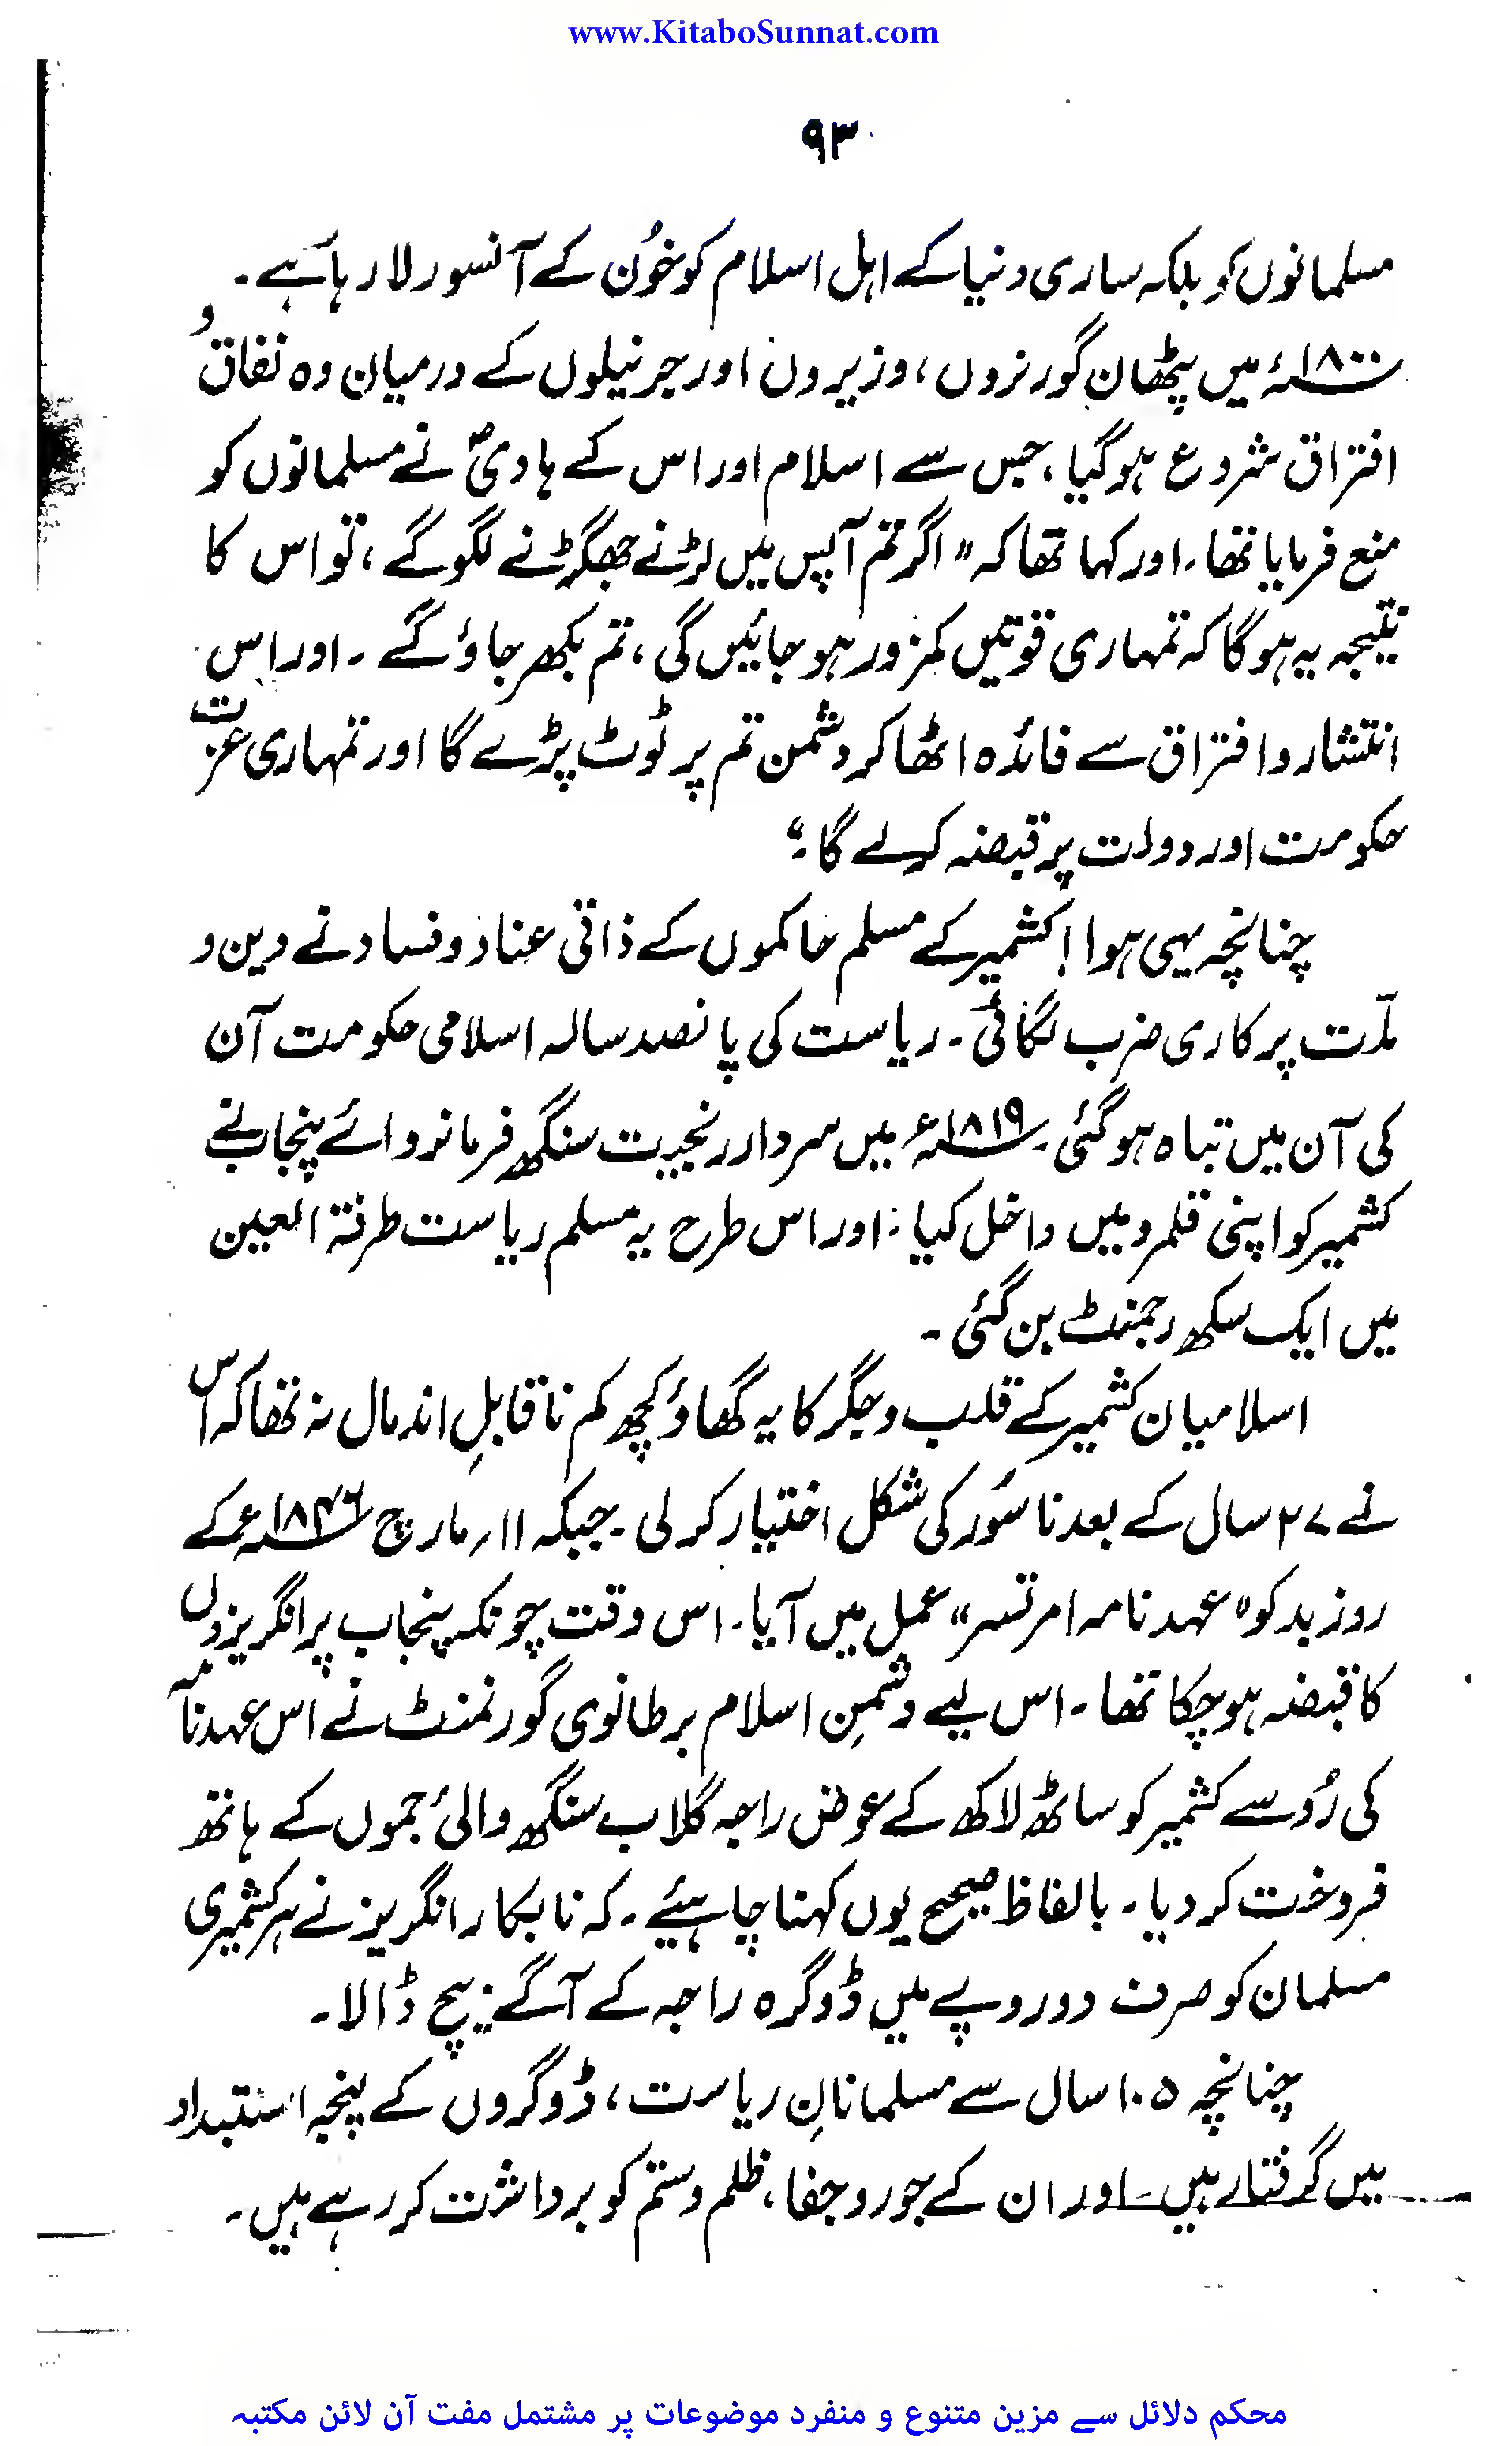 www.KitaboSunnat.com
۹۳
مسلمانوں کو بلکہ ساری دنیا کے اہل اسلام کو خُون کے آنسو رلا رہا ہے۔
۱۸۰۰ء میں پٹھان گورنروں، وزیروں اور جرنیلوں کے درمیان وہ نفاق و
افتراق شروع ہو گیا، جس سے اسلام اور اس کے ہادیؐ نے مسلمانوں کو
منع فرمایا تھا۔ اور کہا تھا کہ "اگر تم آپس میں لڑنے جھگڑنے لگو گے، تو اس کا
نتیجہ یہ ہو گا کہ تمہاری قوتیں کمزور ہو جائیں گی، تم بکھر جاؤ گے۔ اور اس
انتشار و افتراق سے فائدہ اٹھا کر دشمن تم پر ٹوٹ پڑے گا اور تمہاری عزت
حکومت اور دولت پر قبضہ کرلے گا۔"
چنانچہ یہی ہوا! کشمیر کے مسلم حاکموں کے ذاتی عناد و فساد نے دین و
ملّت پر کاری ضرب لگائی۔ ریاست کی پانصد سالہ اسلامی حکومت آن
کی آن میں تباہ ہو گئی۔ ۱۸۱۹ء میں سردار رنجیت سنگھ فرمانروائے پنجاب نے
کشمیر کو اپنی قلمرو میں داخل کیا: اور اس طرح یہ مسلم ریاست طرفۃ العین
میں ایک سکھ رجمنٹ بن گئی۔
اسلامیان کشمیر کے قلب و جگر کا یہ گھاؤ کچھ کم ناقابلِ اندمال نہ تھا کہ اس
نے ۲۷ سال کے بعد ناسُور کی شکل اختیار کر لی۔ جبکہ ۱۱؍ مارچ ۱۸۴۶ء کے
روز بد کو "عہد نامہ امرتسر" عمل میں آیا۔ اس وقت چونکہ پنجاب پر انگریزوں
کا قبضہ ہو چکا تھا۔ اس لیے دشمنِ اسلام برطانوی گورنمنٹ نے اس عہدنامہ
کی رُو سے کشمیر کو ساٹھ لاکھ کے عوض راجہ گلاب سنگھ والئ جموں کے ہاتھ
فروخت کر دیا۔ بالفاظ صحیح یوں کہنا چاہیئے۔ کہ نابکار انگریز نے ہر کشمیری
مسلمان کو صرف دو روپے میں ڈوگرہ راجہ کے آگے بیچ ڈالا۔
چنانچہ ۱۰۵ سال سے مسلمانانِ ریاست، ڈوگروں کے پنجہ استبداد
میں گرفتار ہیں۔ اور ان کے جور و جفا، ظلم و ستم کو برداشت کر رہے ہیں۔
محکم دلائل سے مزین متنوع و منفرد موضوعات پر مشتمل مفت آن لائن مکتبہ